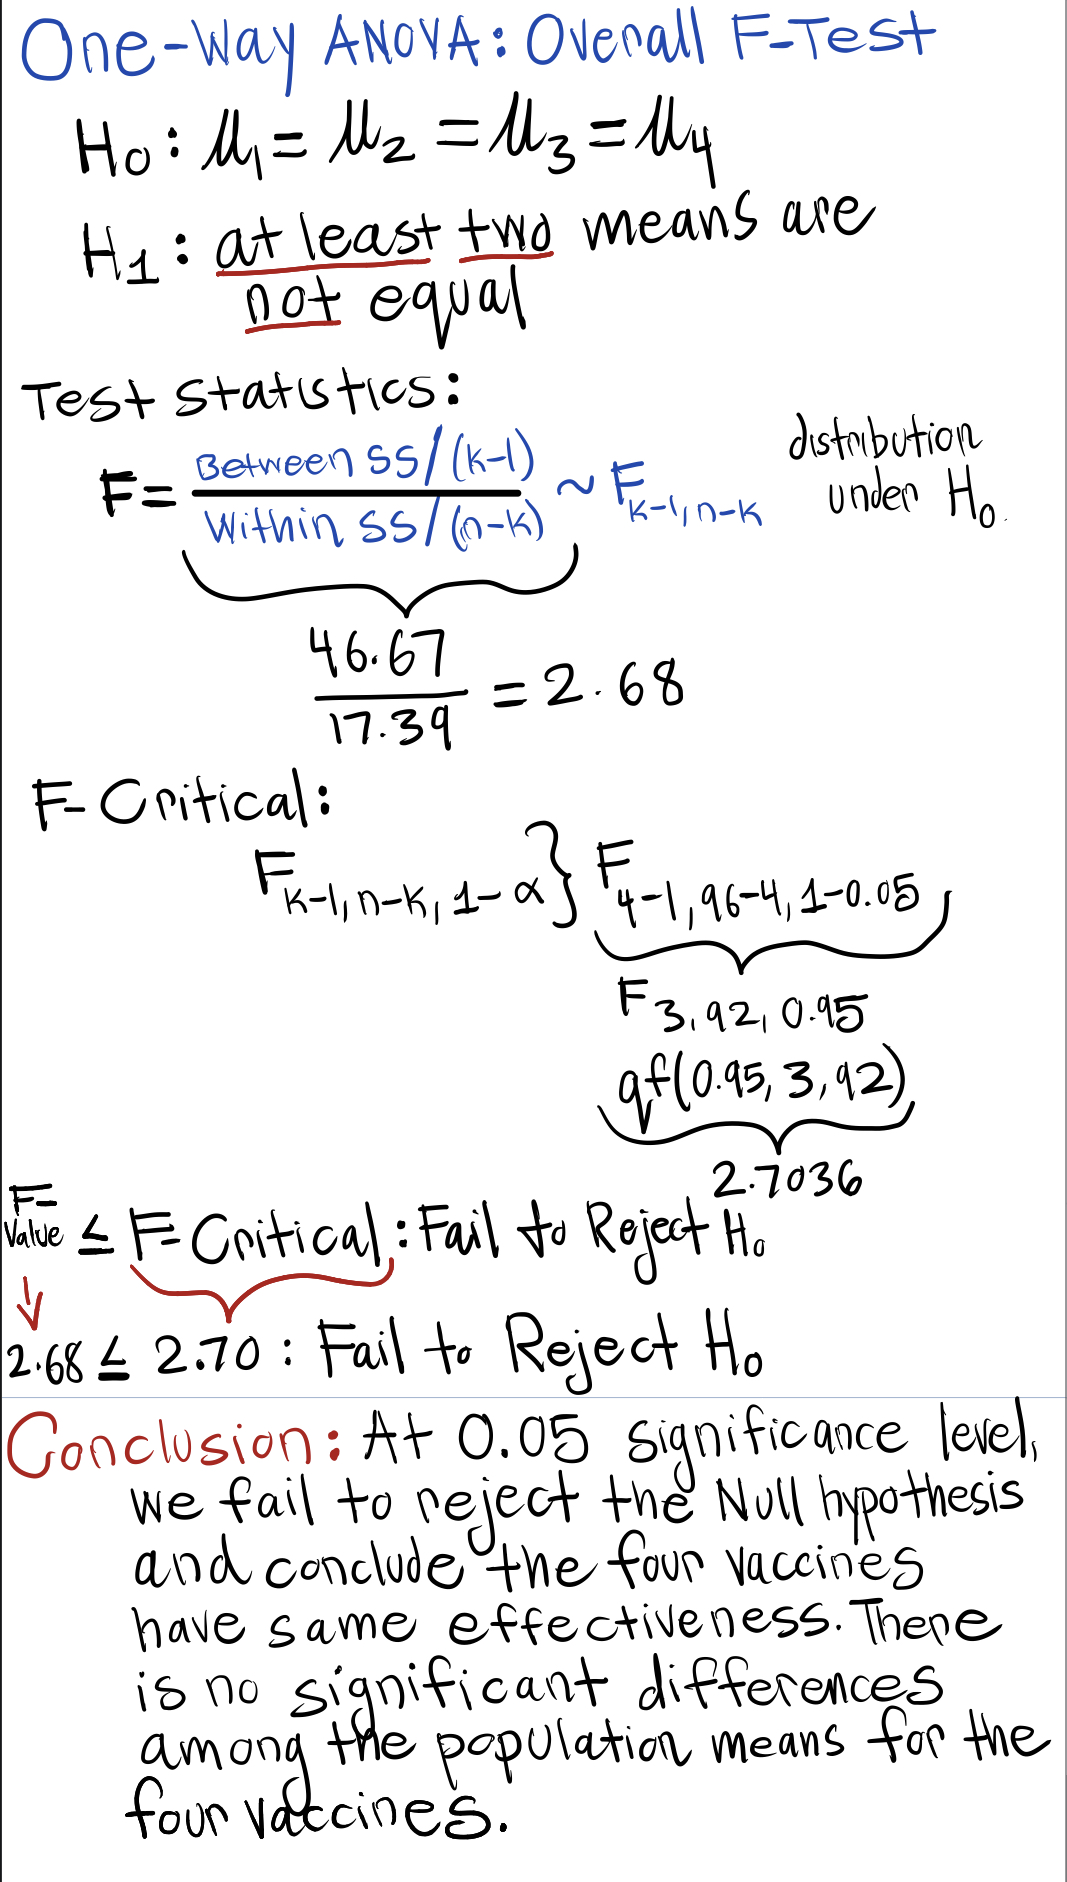 One-Way ANOVA: Overall F-Test
H₀: μ₁ = μ₂ = μ₃ = μ₄
H₁: at least two means are
not equal
Test statistics:
F = Between SS/(k-1) / Within SS/(n-k) ~ F k-1, n-k
distribution
under H₀.
46.67 / 17.39 = 2.68
F-Critical:
F k-1, n-k, 1-α } F 4-1, 96-4, 1-0.05
F 3, 92, 0.95
qf(0.95, 3, 92)
2.7036
F-Value ≤ F-Critical: Fail to Reject H₀
2.68 ≤ 2.70: Fail to Reject H₀
Conclusion: At 0.05 significance level,
we fail to reject the Null hypothesis
and conclude the four vaccines
have same effectiveness. There
is no significant differences
among the population means for the
four vaccines.